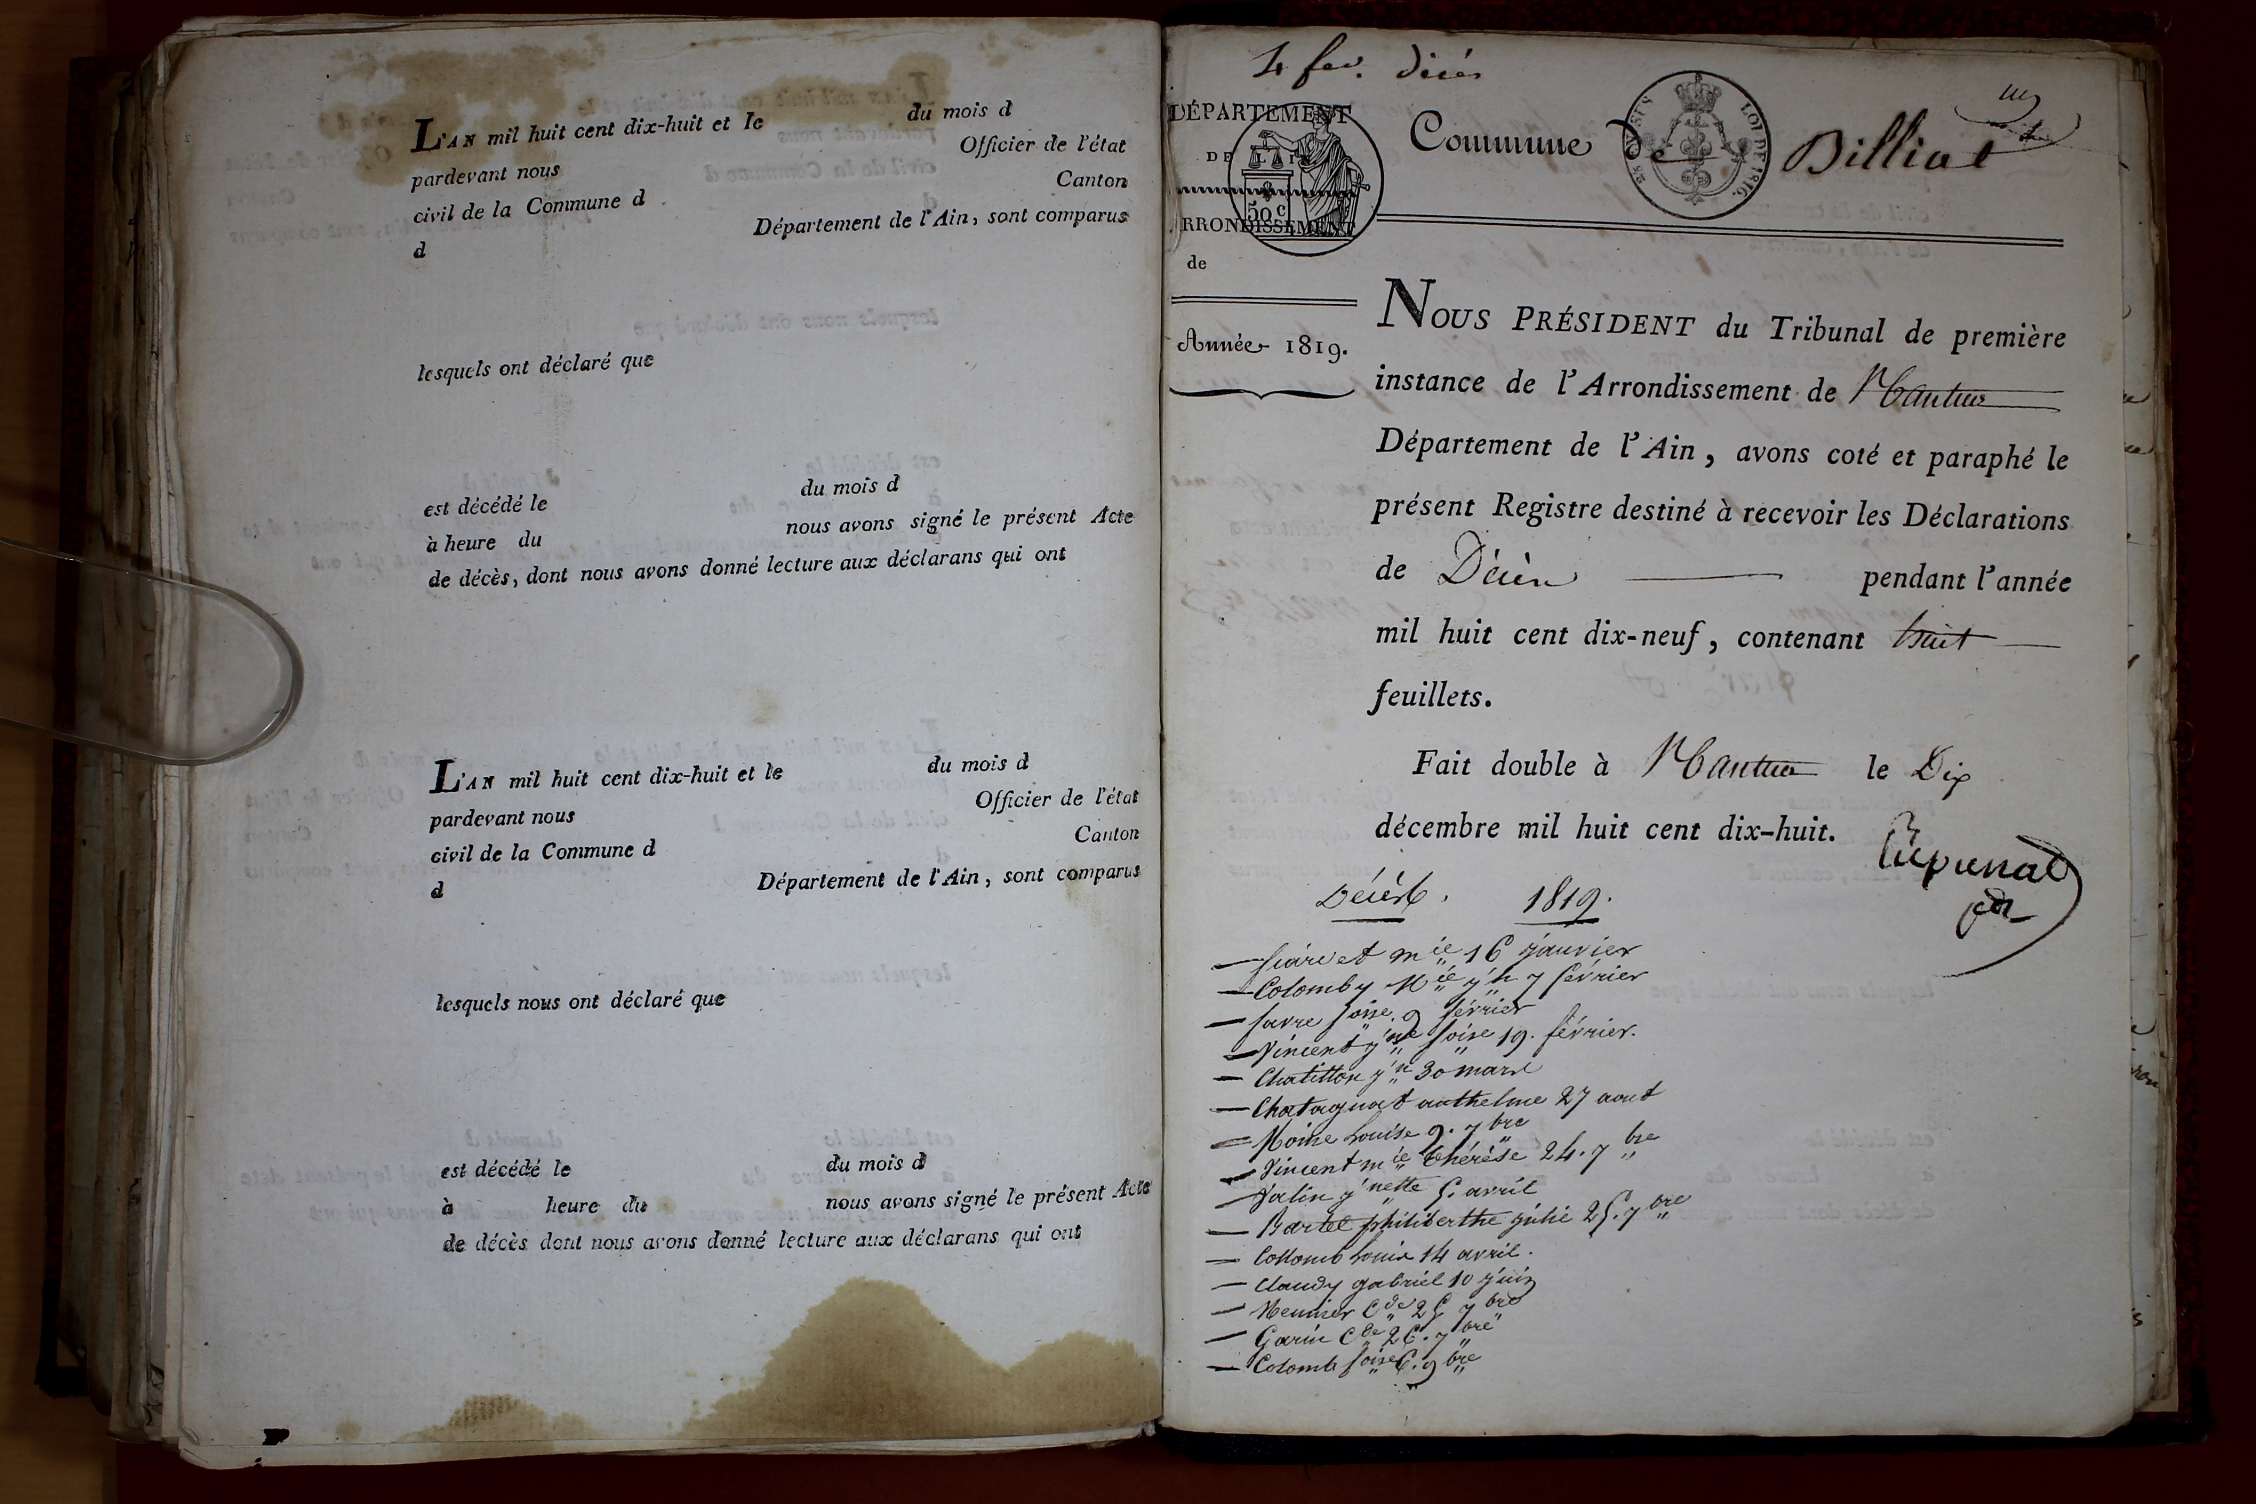 L'AN mil huit cent dix-huit et le du mois d
pardevant nous Officier de l'état
civil de la Commune d Canton
d Département de l'Ain, sont comparus
lesquels ont déclaré que
est décédé le du mois d
à heure du nous avons signé le présent Acte
de décès, dont nous avons donné lecture aux déclarans qui ont
L'AN mil huit cent dix-huit et le du mois d
pardevant nous Officier de l'état
civil de la Commune d Canton
d Département de l'Ain, sont comparus
lesquels nous ont déclaré que
est décédé le du mois d
à heure du nous avons signé le présent Acte
de décès dont nous avons donné lecture aux déclarans qui ont
4 fev. décès
DÉPARTEMENT
DE L'AIN
50 c
ARRONDISSEMENT
de
Année 1819.
Commune de Billiat
LOI DE 1816.
NOUS PRÉSIDENT du Tribunal de première
instance de l'Arrondissement de Nantua
Département de l'Ain, avons coté et paraphé le
présent Registre destiné à recevoir les Déclarations
de Décès pendant l'année
mil huit cent dix-neuf, contenant huit
feuillets.
Fait double à Nantua le Dix
décembre mil huit cent dix-huit.
Décès. 1819.
m ie 16 janvier
Colomby M ie j h 7 février
favre foise. 9 février
Vincent j ne foise 19. février.
Chatillon j n 30 mars
Chatagnat anthelme 27 aout
Moine Louise 9. 7 bre
Vincent m ie thérèse 24. 7 bre
j nette 5. avril
philiberthe julie 25. 7 bre
Collomb Louis 14 avril.
Claudy gabriel 10 juin
Meunier C de 25 7 bre
Garin C de 26. 7 bre
Colomb foise 6. 9 bre